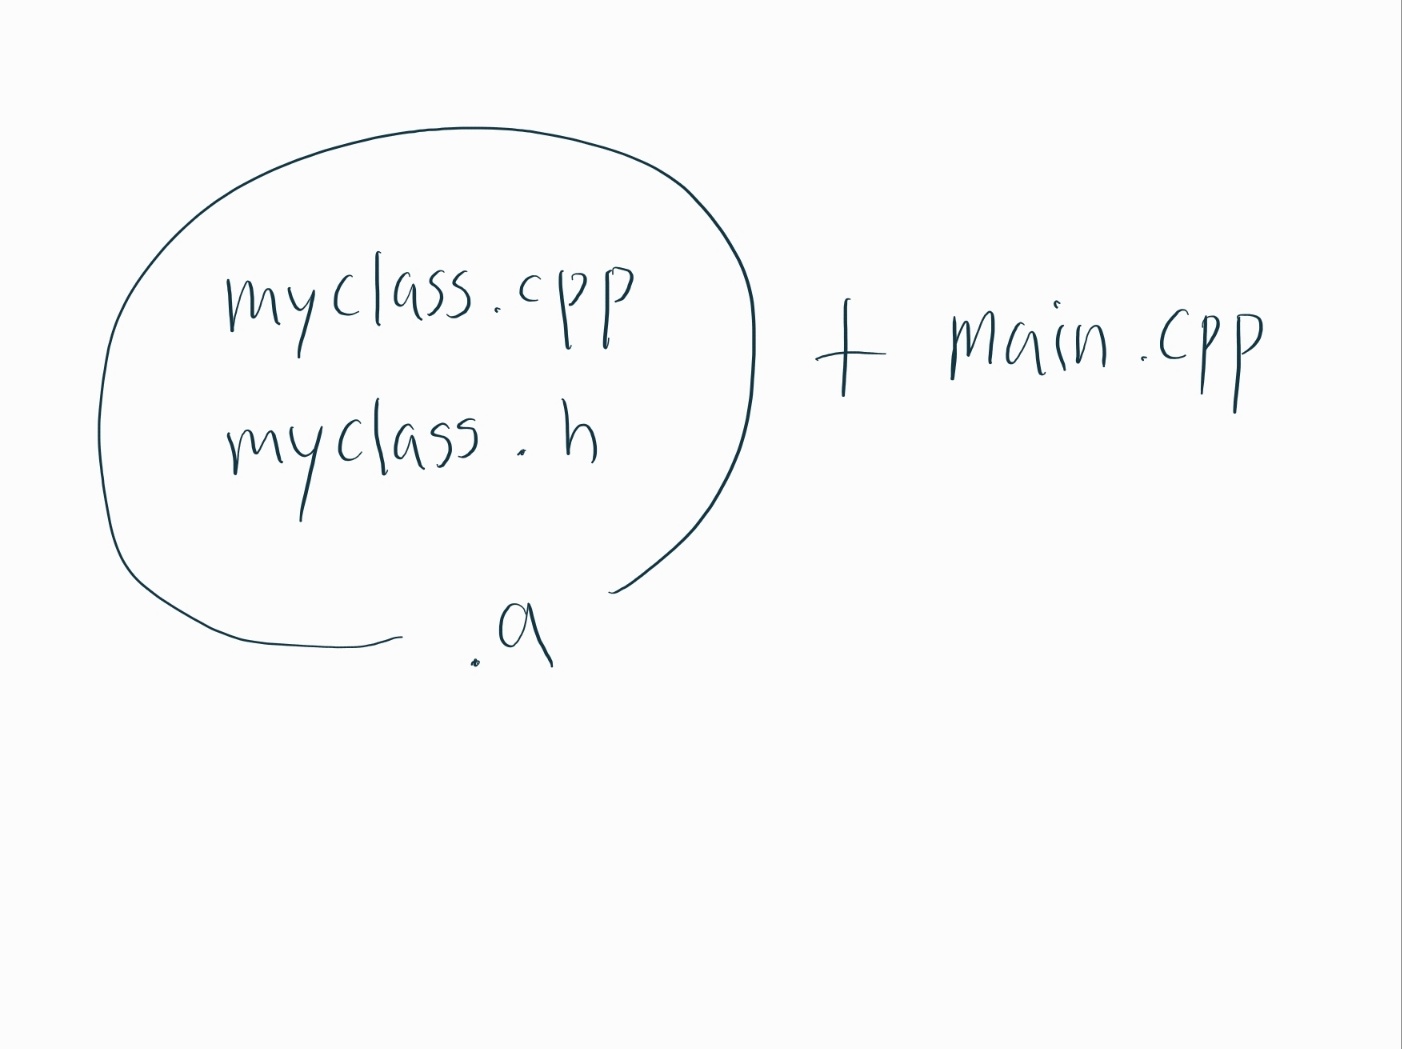 myclass.cpp
myclass.h
.a
+ main.cpp